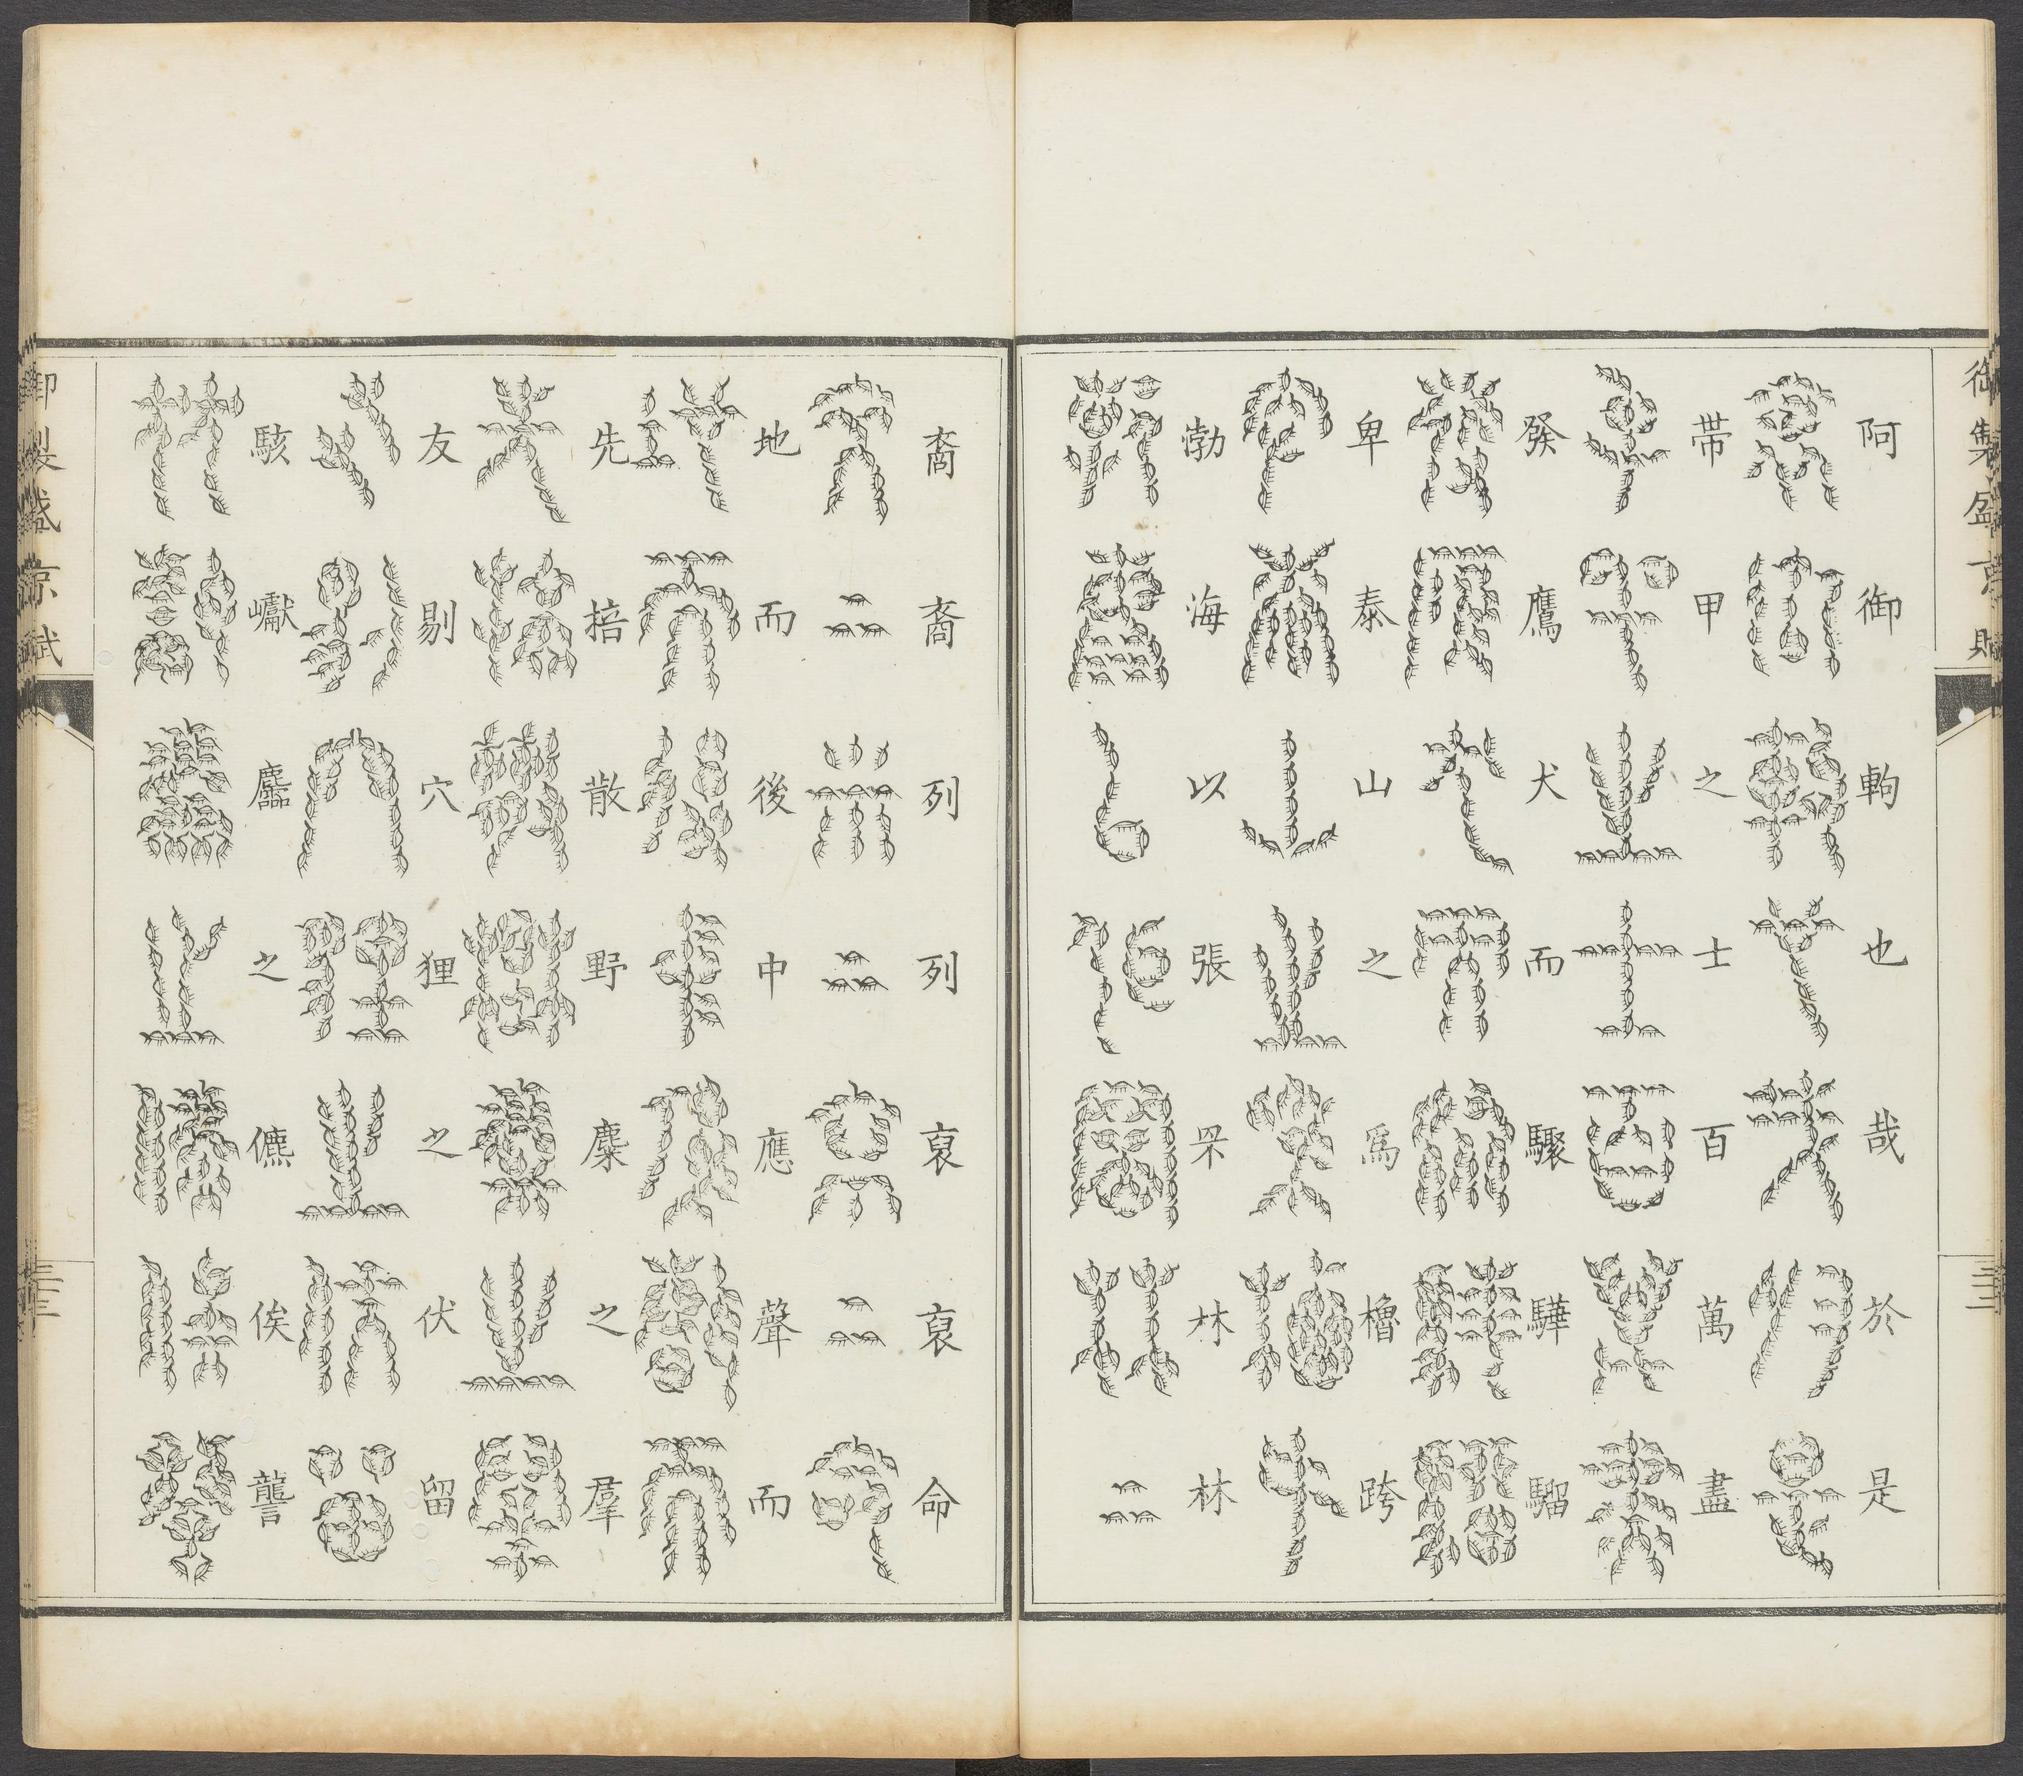 御製盛京賦
阿御軥也哉於是
帶甲之士百萬盡
發鷹犬而驟驊騮
卑泰山之爲櫓跨
渤海以張罘林林
裔裔列列裒裒命
地而後中應聲而
先掊散野麋之羣
友剔穴狸之伏留
駭巘麢之儦俟讋
御製盛京賦